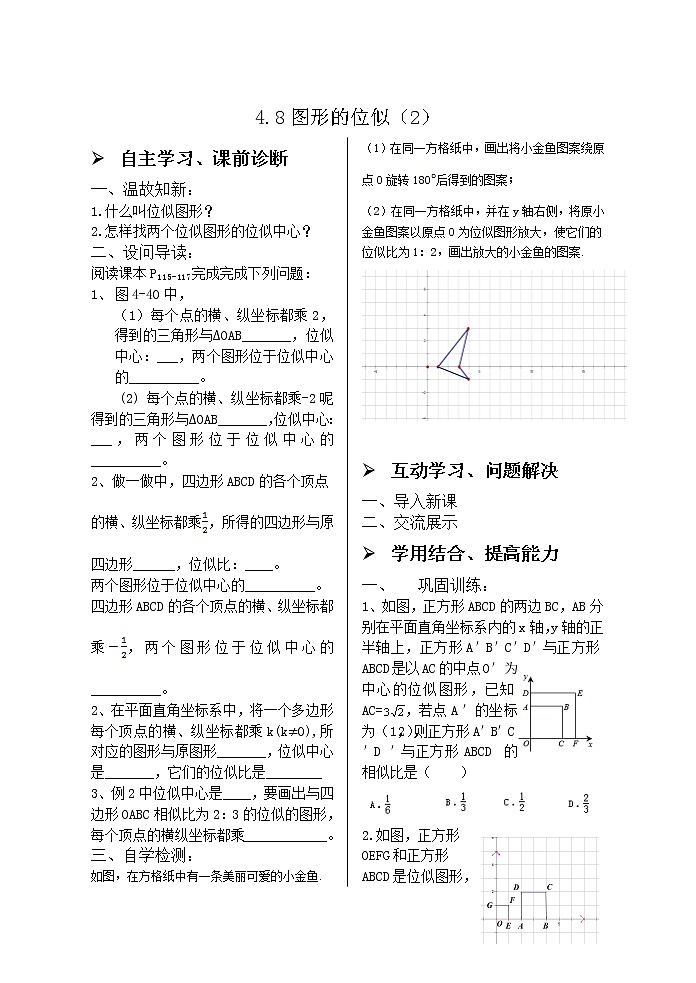 4.8图形的位似（2）
➢ 自主学习、课前诊断
一、温故知新：
1.什么叫位似图形？
2.怎样找两个位似图形的位似中心？
二、设问导读：
阅读课本P115-117完成完成下列问题：
1、图4-40中，
（1）每个点的横、纵坐标都乘2，
得到的三角形与ΔOAB_______，位似
中心：___，两个图形位于位似中心
的__________。
(2) 每个点的横、纵坐标都乘-2呢
得到的三角形与ΔOAB_______,位似中心:
___，两个图形位于位似中心的
__________。
2、做一做中，四边形ABCD的各个顶点
的横、纵坐标都乘1/2，所得的四边形与原
四边形______，位似比：____。
两个图形位于位似中心的__________。
四边形ABCD的各个顶点的横、纵坐标都
乘－1/2，两个图形位于位似中心的
__________。
2、在平面直角坐标系中，将一个多边形
每个顶点的横、纵坐标都乘k(k≠0),所
对应的图形与原图形_______，位似中心
是_______，它们的位似比是________
3、例2中位似中心是____，要画出与四
边形OABC相似比为2：3的位似的图形，
每个顶点的横纵坐标都乘____________。
三、自学检测：
如图，在方格纸中有一条美丽可爱的小金鱼.
（1）在同一方格纸中，画出将小金鱼图案绕原
点O旋转180°后得到的图案；
（2）在同一方格纸中，并在y轴右侧，将原小
金鱼图案以原点O为位似图形放大，使它们的
位似比为1：2，画出放大的小金鱼的图案.
➢ 互动学习、问题解决
一、导入新课
二、交流展示
➢ 学用结合、提高能力
一、 巩固训练：
1、如图，正方形ABCD的两边BC，AB分
别在平面直角坐标系内的x轴,y轴的正
半轴上，正方形A′B′C′D′与正方形
ABCD是以AC的中点O′为
中心的位似图形，已知
AC=3√2，若点A′的坐标
为（1,2）则正方形A′B′C
′D′与正方形ABCD 的
相似比是（ ）
y
D E
A B
O C F x
A.1/6 B.1/3 C.1/2 D.2/3
2.如图，正方形
OEFG和正方形
ABCD是位似图形，
D C
G F
O E A B